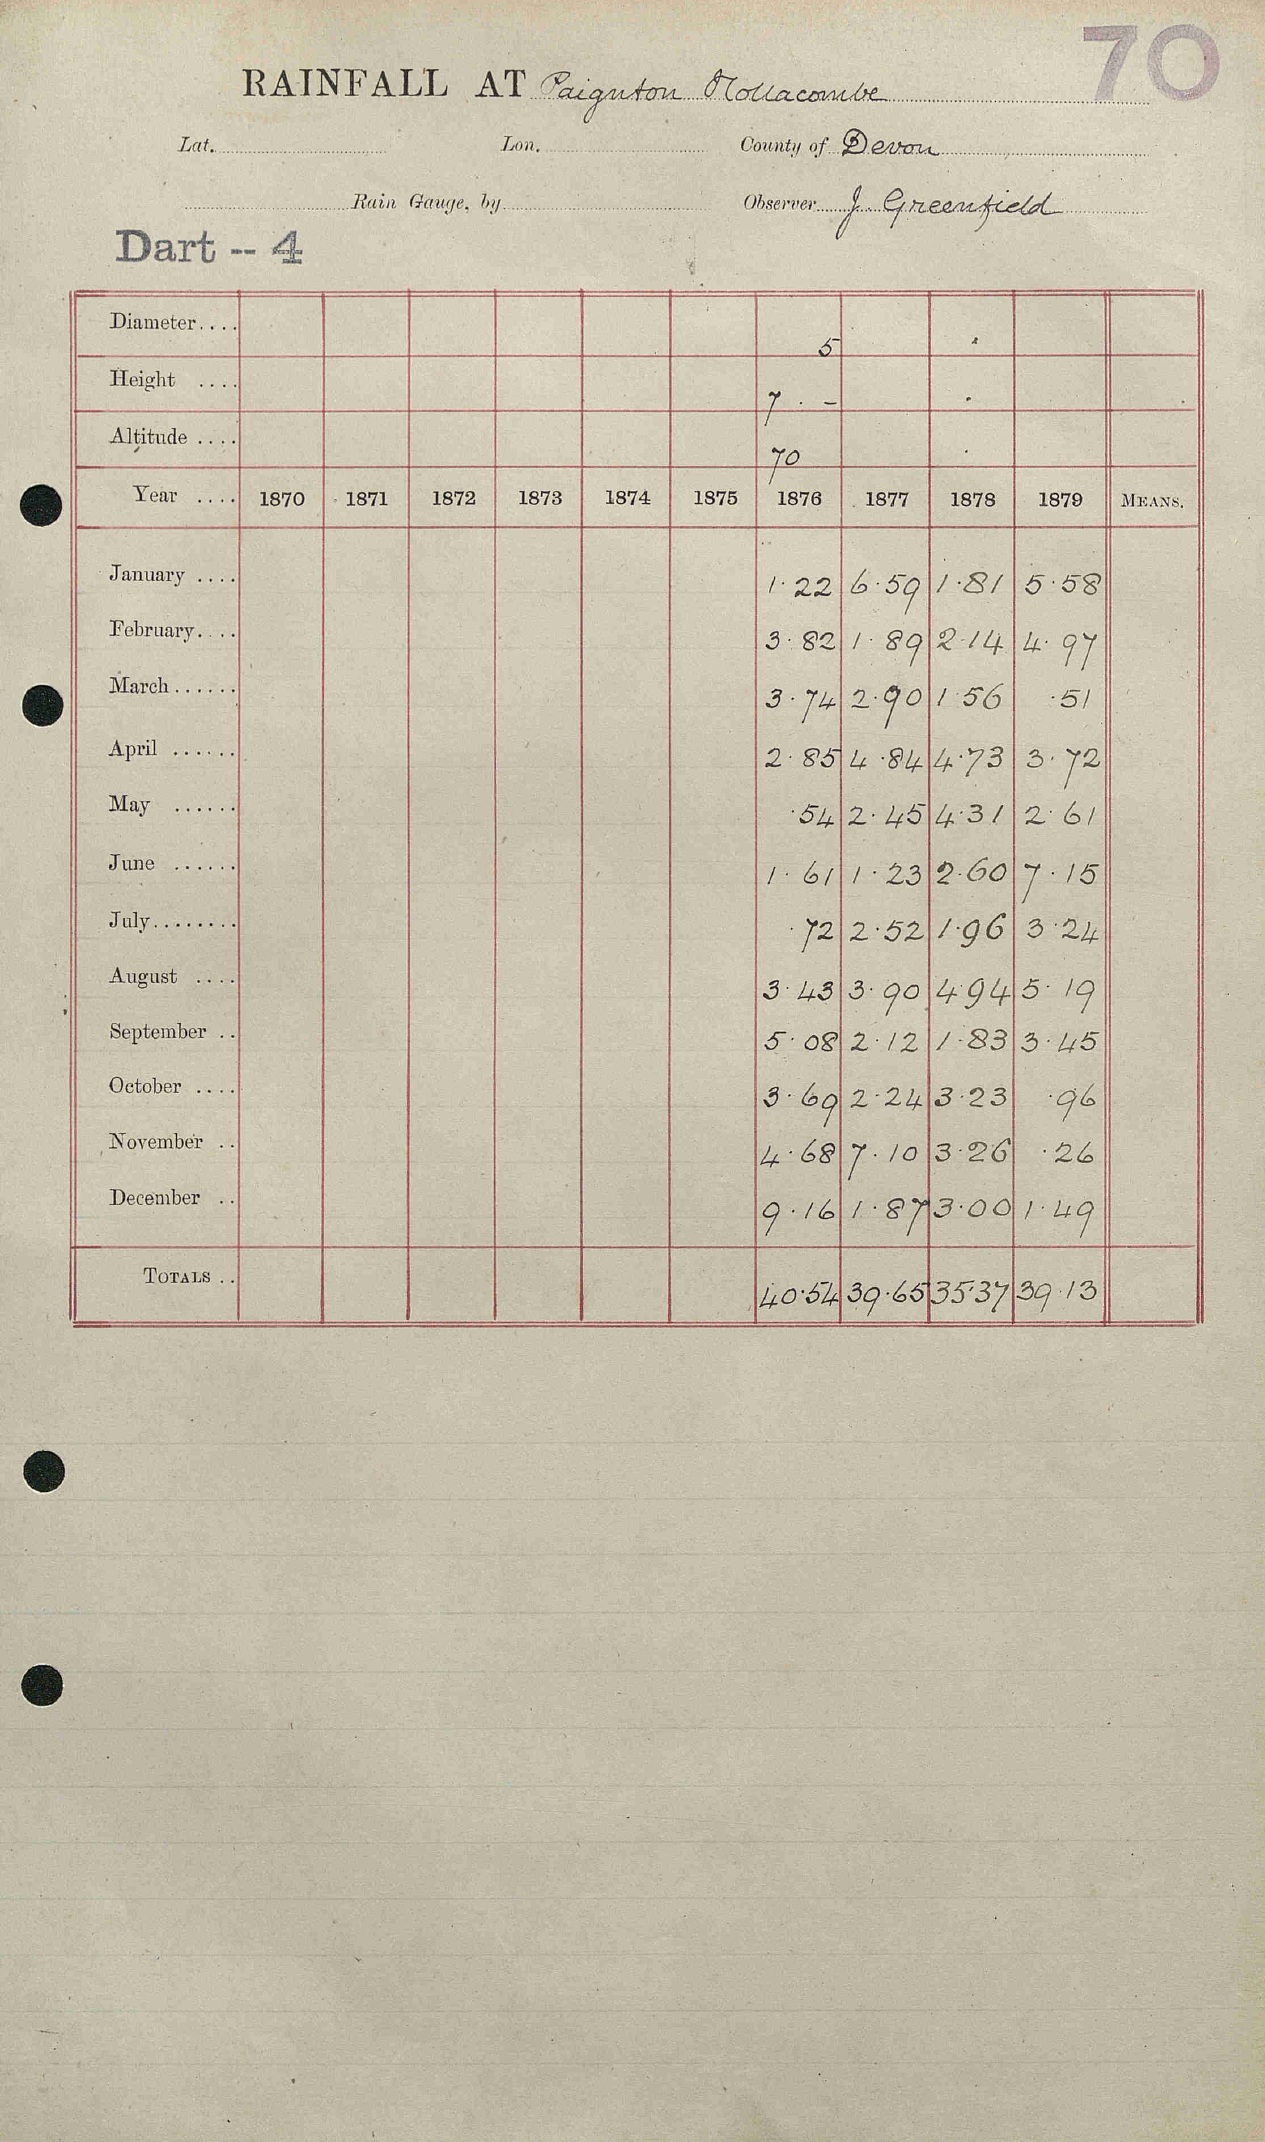 70
RAINFALL AT Paignton Hollacombe
Lat. Lon. County of Devon
Rain Gauge, by Observer J. Greenfield
Dart -- 4
Diameter.... 5
Height .... 7 . -
Altitude .... 70
Year .... 1870 1871 1872 1873 1874 1875 1876 1877 1878 1879 MEANS.
January .... 1.22 6.59 1.81 5.58
February.... 3.82 1.89 2.14 4.97
March...... 3.74 2.90 1.56 .51
April ...... 2.85 4.84 4.73 3.72
May ...... .54 2.45 4.31 2.61
June ...... 1.61 1.23 2.60 7.15
July........ .72 2.52 1.96 3.24
August .... 3.43 3.90 4.94 5.19
September .. 5.08 2.12 1.83 3.45
October .... 3.69 2.24 3.23 .96
November .. 4.68 7.10 3.26 .26
December .. 9.16 1.87 3.00 1.49
TOTALS .. 40.54 39.65 35.37 39.13